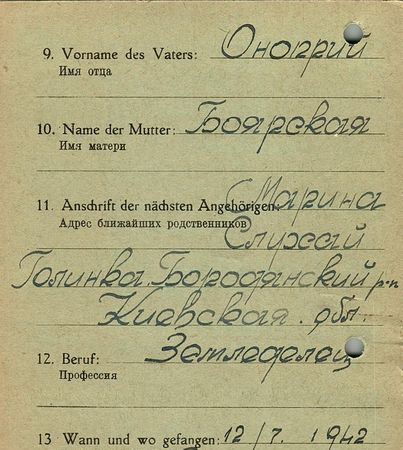 9. Vorname des Vaters: Оноприй
Имя отца
10. Name der Mutter: Боярская
Имя матери
11. Anschrift der nächsten Angehörigen: Марина
Адрес ближайших родственников Слухай
Голинка. Бородянский р-н
Киевская. обл.
12. Beruf: Земледелец
Профессия
13 Wann und wo gefangen: 12/7. 1942